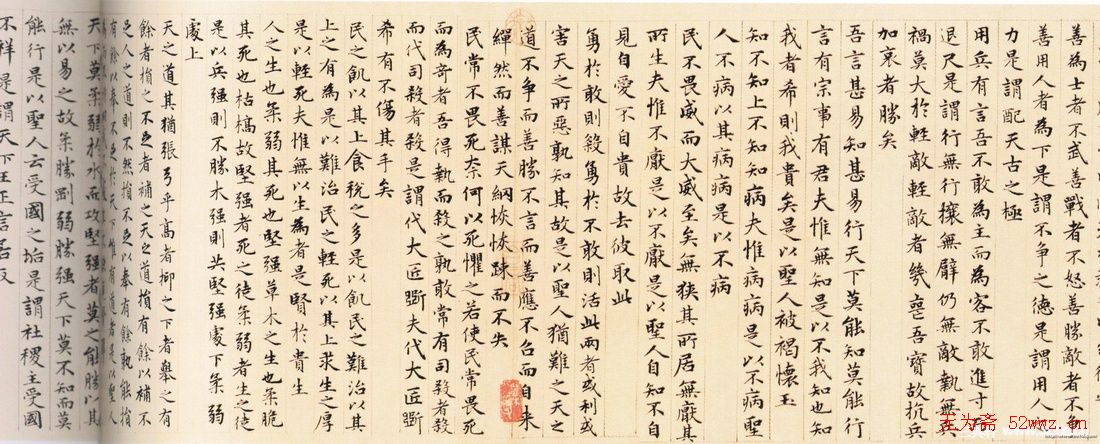 善為士者不武善戰者不怒善勝敵者不爭
善用人者為下是謂不爭之德是謂用人
力是謂配天古之極
用兵有言吾不敢為主而為客不敢進寸而
退尺是謂行無行攘無臂仍無敵執無兵
禍莫大於輕敵輕敵者幾喪吾寶故抗兵
加哀者勝矣
吾言甚易知甚易行天下莫能知莫能行
言有宗事有君夫惟無知是以不我知也知
我者希則我貴矣是以聖人被褐懷玉
知不知上不知知病夫惟病病是以不病聖
人不病以其病病是以不病
民不畏威而大威至矣無狹其所居無厭其
所生夫惟不厭是以不厭是以聖人自知不自
見自愛不自貴故去彼取此
勇於敢則殺勇於不敢則活此兩者或利或
害天之所惡孰知其故是以聖人猶難之天之
道不爭而善勝不言而善應不召而自来
繟然而善謀天網恢恢踈而不失
民常不畏死奈何以死懼之若使民常畏死
而為奇者吾得執而殺之孰敢常有司殺者殺
而代司殺者殺是謂代大匠斲夫代大匠斲
希有不傷其手矣
民之飢以其上食稅之多是以飢民之難治以其
上之有為是以難治民之輕死以其上求生之厚
是以輕死夫惟無以生為者是賢於貴生
人之生也柔弱其死也堅强草木之生也柔脆
其死也枯槁故堅强者死之徒柔弱者生之徒
是以兵强則不勝木强則共堅强處下柔弱
處上
天之道其猶張弓乎高者抑之下者舉之有
餘者損之不足者補之天之道損有餘以補不
足人之道則不然損不足以奉有餘孰能損
有餘以奉
天下莫柔弱於水而攻堅强者莫之能勝以其
無以易之故柔勝剛弱勝强天下莫不知而莫
能行是以聖人云受國之垢是謂社稷主受國
不祥是謂天下王正言若反
玉为斋 52wwz.cn